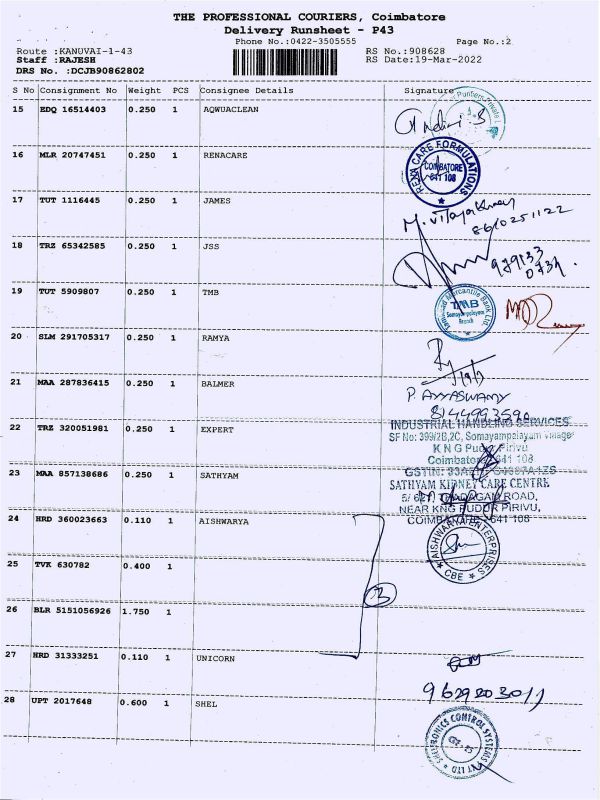 THE PROFESSIONAL COURIERS, Coimbatore
Delivery Runsheet - P43
Phone No.:0422-3505555 Page No.:2
Route :KANUVAI-1-43 RS No.:908628
Staff :RAJESH RS Date:19-Mar-2022
DRS No. :DCJB90862802
S No Consignment No Weight PCS Consignee Details Signature
15 EDQ 16514403 0.250 1 AQWUACLEAN
16 MLR 20747451 0.250 1 RENACARE
CARE FORMULATIONS
COIMBATORE
641 108
17 TUT 1116445 0.250 1 JAMES
8610251122
18 TRZ 65342585 0.250 1 JSS
19 TUT 5909807 0.250 1 TMB
Mercantile Bank Ltd.
TMB
Somayampalayam
Branch
20 SLM 291705317 0.250 1 RAMYA
21 MAA 287836415 0.250 1 BALMER
P. AYYASWAMY
8144993590
22 TRZ 320051981 0.250 1 EXPERT
INDUSTRIAL HANDLING SERVICES
SF No: 399/2B,2C, Somayampalayam Village
K N G Pudur Pirivu
Coimbatore 641 108
23 MAA 857138686 0.250 1 SATHYAM
SATHYAM KIDNEY CARE CENTRE
THADAGAM ROAD,
NEAR KNG PUDUR PIRIVU,
COIMBATORE - 641 108
24 HRD 360023663 0.110 1 AISHWARYA
AISHWARYA ENTERPRISES
CBE
25 TVK 630782 0.400 1
3
26 BLR 5151056926 1.750 1
27 HRD 31333251 0.110 1 UNICORN
9629203011
28 UPT 2017648 0.600 1 SHEL
SHELTRONICS CONTROL SYSTEMS PVT LTD